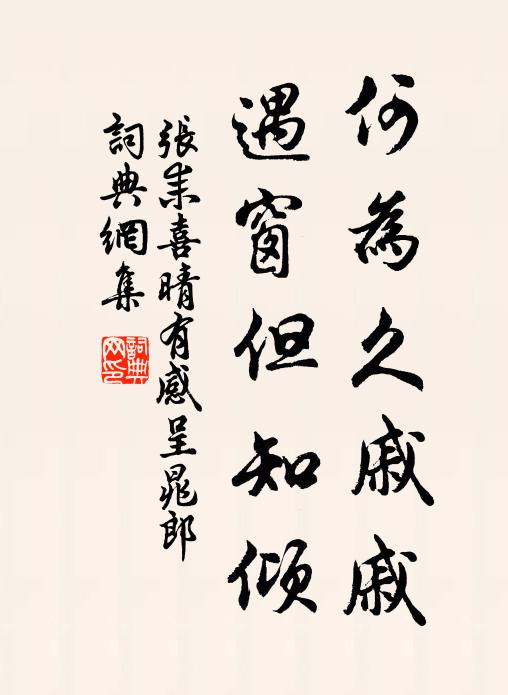 何為久戚戚
遇窗但知傾
張耒喜晴有感呈晁郎
詞典網集
詞典網印